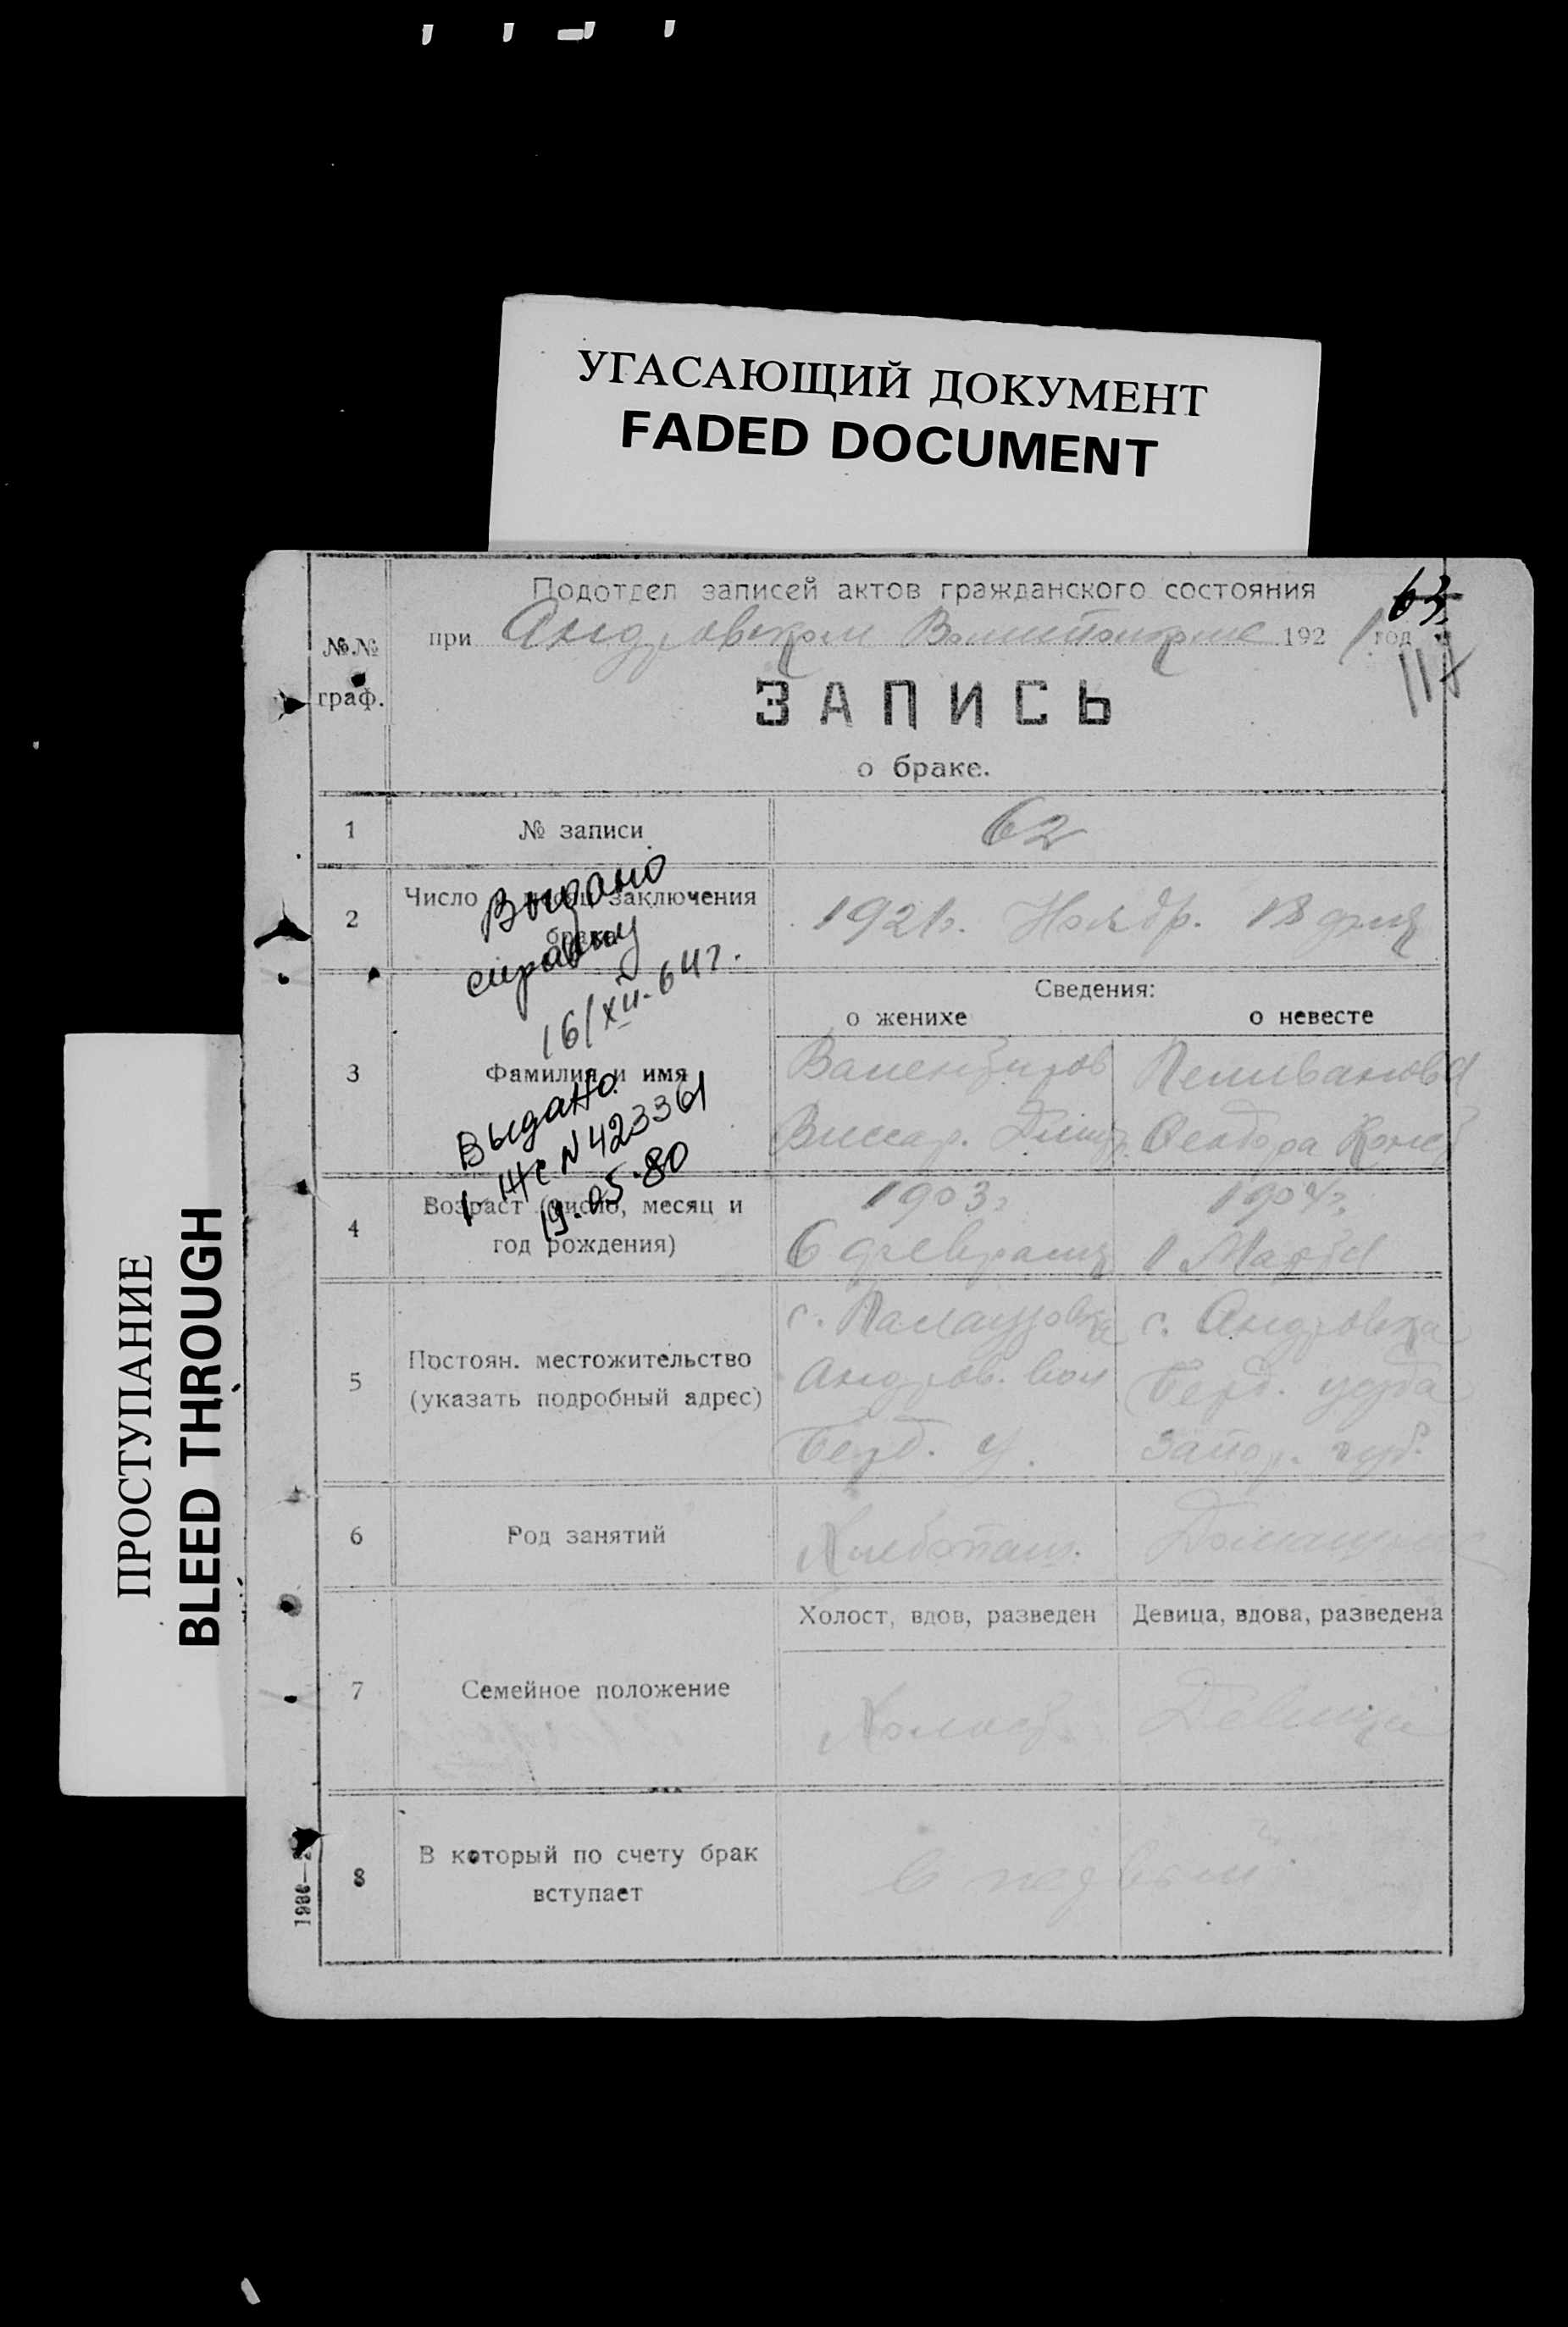 УГАСАЮЩИЙ ДОКУМЕНТ
FADED DOCUMENT
ПРОСТУПАНИЕ
BLEED THROUGH
Подотдел записей актов гражданского состояния
63
№.№ граф.
при Андровском Волисполкоме 1921 год
117
ЗАПИСЬ
о браке.
1 № записи 62
2 Число и месяц заключения брака
1921г. Ноябр. 18 дня
Выдано
справку
16/XII-64г.
Сведения:
о женихе о невесте
3 Фамилия и имя
Пеливанова
Виссар. Дмитр. Феодора Конст
Выдано
I-ЖС N 423361
19.05.80
4 Возраст (число, месяц и
год рождения)
1903г 1904г.
6 февраля 1 Марта
5 Постоян. местожительство
(указать подробный адрес)
с. Палаузовка с. Андровка
Андров. вол Берд. уезда
Берд. у. Запор. губ.
6 Род занятий
Хлебопаш.
Холост, вдов, разведен Девица, вдова, разведена
7 Семейное положение
Холост Девица
8 В который по счету брак
вступает
в первый